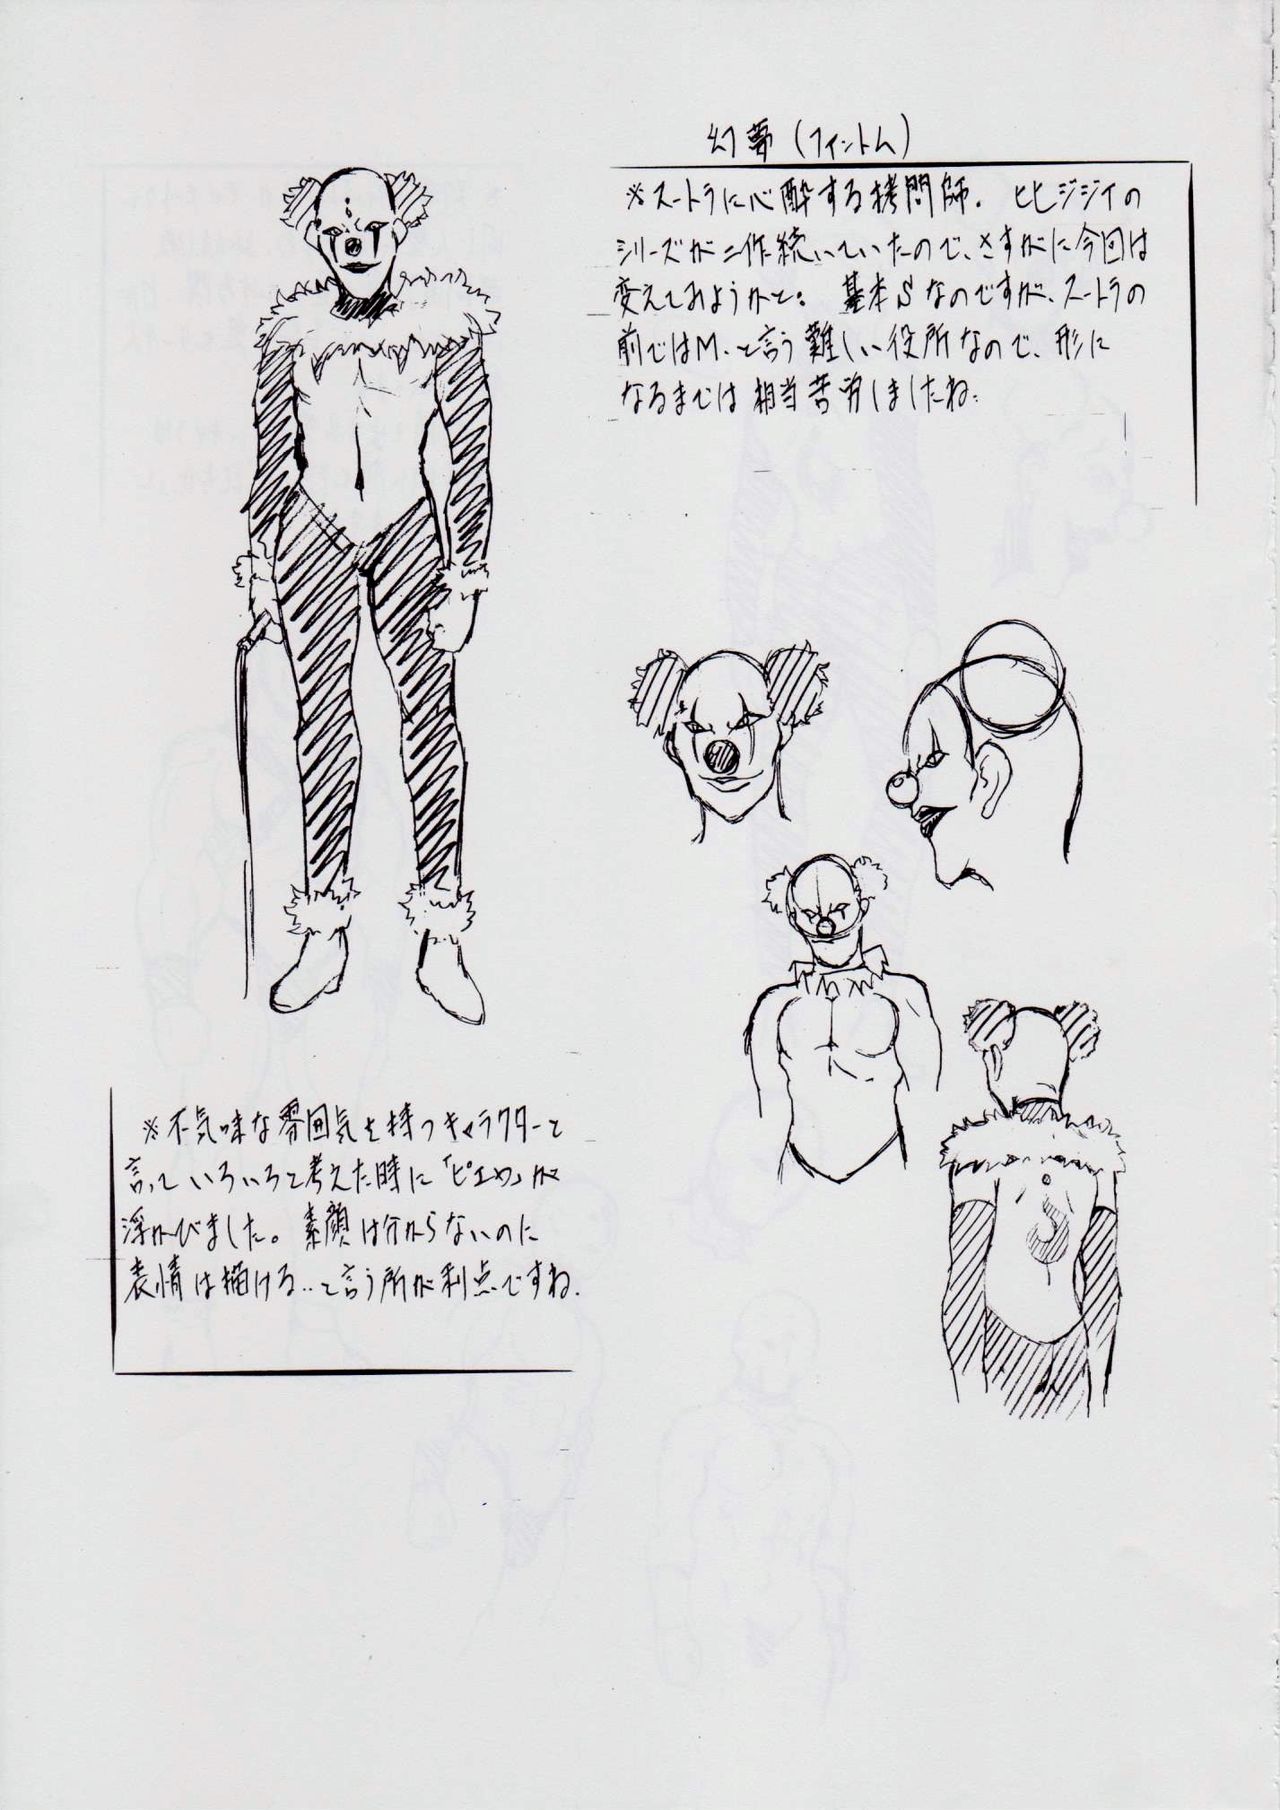 幻夢(ファントム)
※スートラに心酔する拷問師. ヒヒジジイの
シリーズが二作続いていたので、さすがに今回は
変えてみようかと。 基本Sなのですが、スートラの
前ではM、と言う難しい役所なので、形に
なるまでは相当苦労しましたね.
※不気味な雰囲気を持つキャラクターと
言っていろいろと考えた時に「ピエロ」が
浮かびました。素顔は分からないのに
表情は描ける‥と言う所が利点ですね.
S